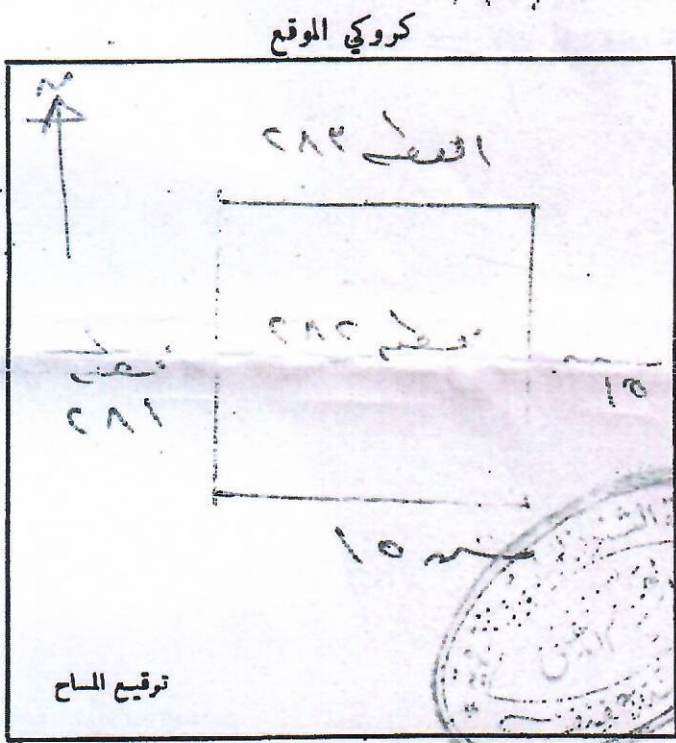 كروكي الموقع
القطعة ٢٨٣
قطعة ٢٨٢
قطعة
٢٨١
١٥
١٥
توقيع المساح